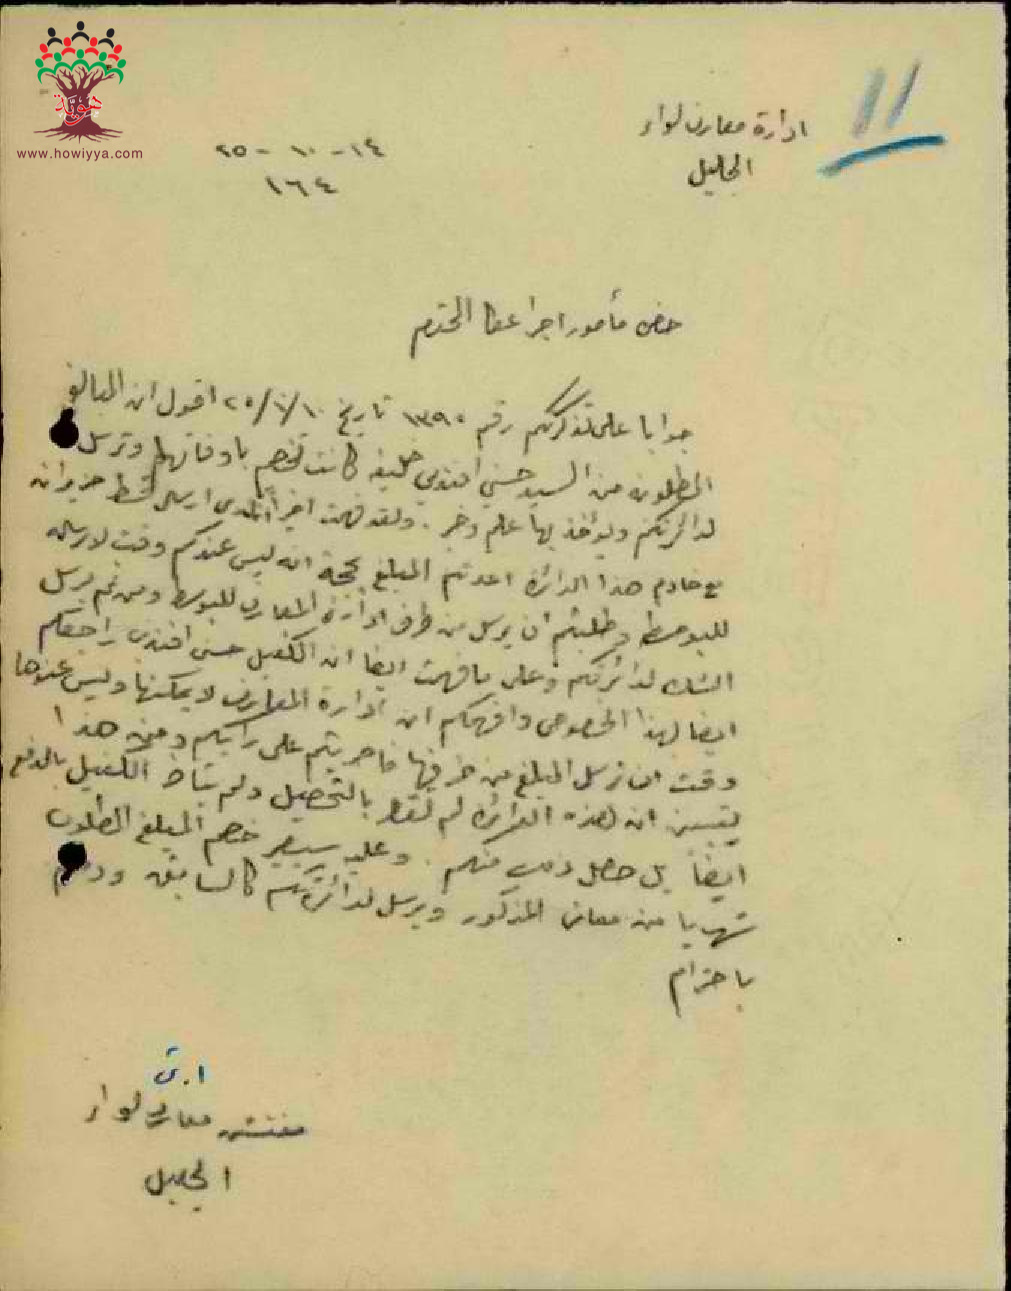 هوية
www.howiyya.com
١١
ادارة معارف لواء
الجليل
١٤ - ١٠ - ٢٥
١٦٤
حضرة مأمور اجرا عكا المحترم
جوابا على تذكرتكم رقم ١٣٩٠ تاريخ ١٠/١٠/٢٥ اقول ان المبالغ
المطلوبة من السيد حسني افندي خليفه كانت تخصم باوقاتها وترسل
لدائرتكم ويؤخذ بها علم وخبر. ولقد فهمت اخيرا لدى ارسال قسط حزيران
مع خادم هذا الدائرة اعدتم المبلغ بحجة انه ليس عندكم وقت لارساله
للبوسطه وطلبتم ان يرسل من طرف ادارة المعارف للبوسطه ومن ثم يرسل
لدائرتكم وعلى ما فهمت ايضا ان الكفيل حسني افندي راجعكم
ايضا لهذا الخصوص وافهمكم ان ادارة المعارف لا يمكنها وليس عندها
وقت ان ترسل المبلغ من طرفها فاصريتم على رأيكم ومن هذا
يتبين ان هذه الدائرة لم تقصر بالتحصيل ولم الكفيل بالدفع
ايضاً بل حصل ذلك منكم. وعليه سيصير خصم المبلغ المطلوب
شهريا من معاش المذكور ويرسل لدائرتكم كالسابق ودمتم
باحترام
مفتش معارف لواء
الجليل